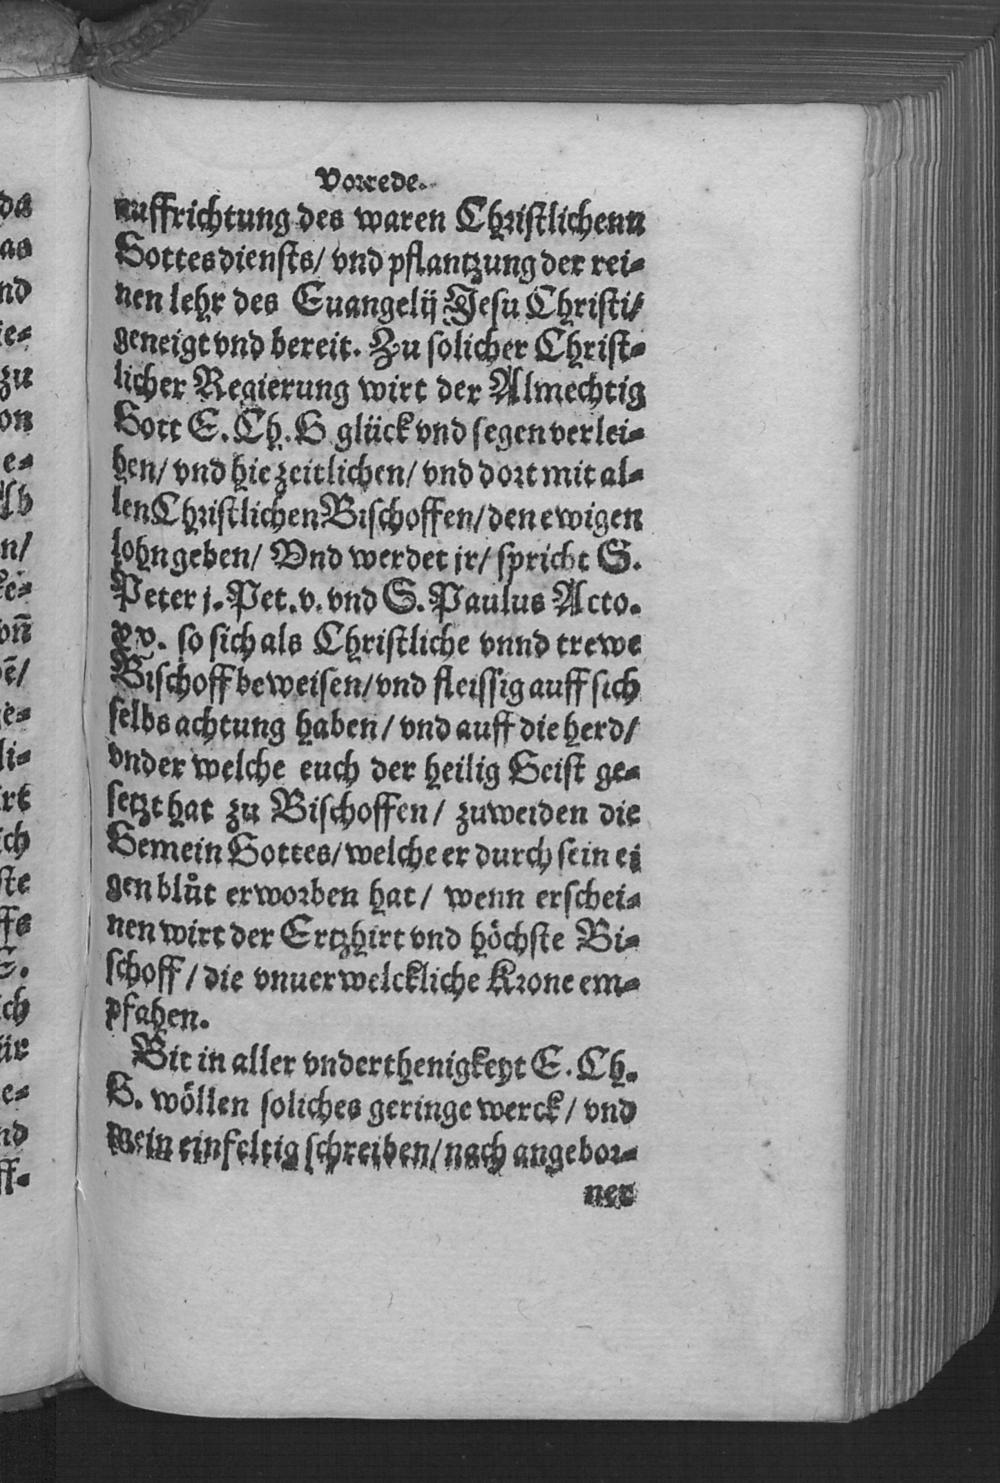 Vorrede.
auffrichtung des waren Christlichenn
Gottesdiensts/ vnd pflantzung der rei-
nen lehr des Euangelij Jesu Christi/
geneigt vnd bereit. Zu solicher Christ-
licher Regierung wirt der Almechtig
Gott E. Ch. G glück vnd segen verlei-
hen/ vnd hie zeitlichen/ vnd dort mit al-
len Christlichen Bischoffen/ den ewigen
lohn geben/ Vnd werdet jr/ spricht S.
Peter j. Pet. v. vnd S. Paulus Acto.
xv. so sich als Christliche vnnd trewe
Bischoff beweisen/ vnd fleissig auff sich
selbs achtung haben/ vnd auff die herd/
vnder welche euch der heilig Geist ge-
setzt hat zu Bischoffen/ zuweiden die
Gemein Gottes/ welche er durch sein ei
gen blůt erworben hat/ wenn erschei-
nen wirt der Ertzhirt vnd höchste Bi-
schoff/ die vnuerwelckliche Krone em-
pfahen.
Bit in aller vnderthenigkeyt E. Ch.
G. wöllen soliches geringe werck/ vnd
mein einfeltig schreiben/ nach angebor-
ner